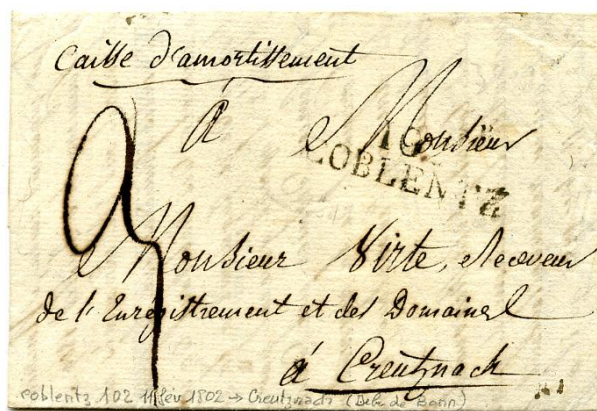 Caisse d'amortissement
à Monsieur
COBLENTZ
Monsieur Virte, Receveur
de l'Enregistrement et des Domaines
à Creutznach
coblentz 102 11 fév 1802 → Creutznach (Deb. de Bonn)